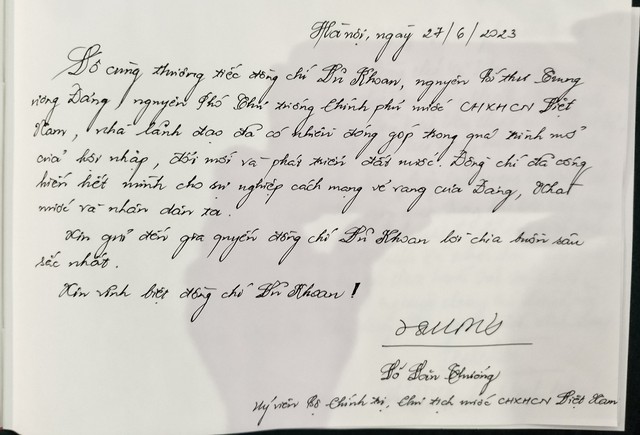 Hà nội, ngày 27/6/2023
Vô cùng thương tiếc đồng chí Vũ Khoan, nguyên Bí thư Trung
ương Đảng, nguyên Phó Thủ tướng Chính phủ nước CHXHCN Việt
Nam, nhà lãnh đạo đã có nhiều đóng góp trong quá trình mở
cửa hội nhập, đổi mới và phát triển đất nước. Đồng chí đã cống
hiến hết mình cho sự nghiệp cách mạng vẻ vang của Đảng, Nhà
nước và nhân dân ta.
Xin gửi đến gia quyến đồng chí Vũ Khoan lời chia buồn sâu
sắc nhất.
Xin vĩnh biệt đồng chí Vũ Khoan!
Võ Văn Thưởng
Uỷ viên Bộ Chính trị, Chủ tịch nước CHXHCN Việt Nam